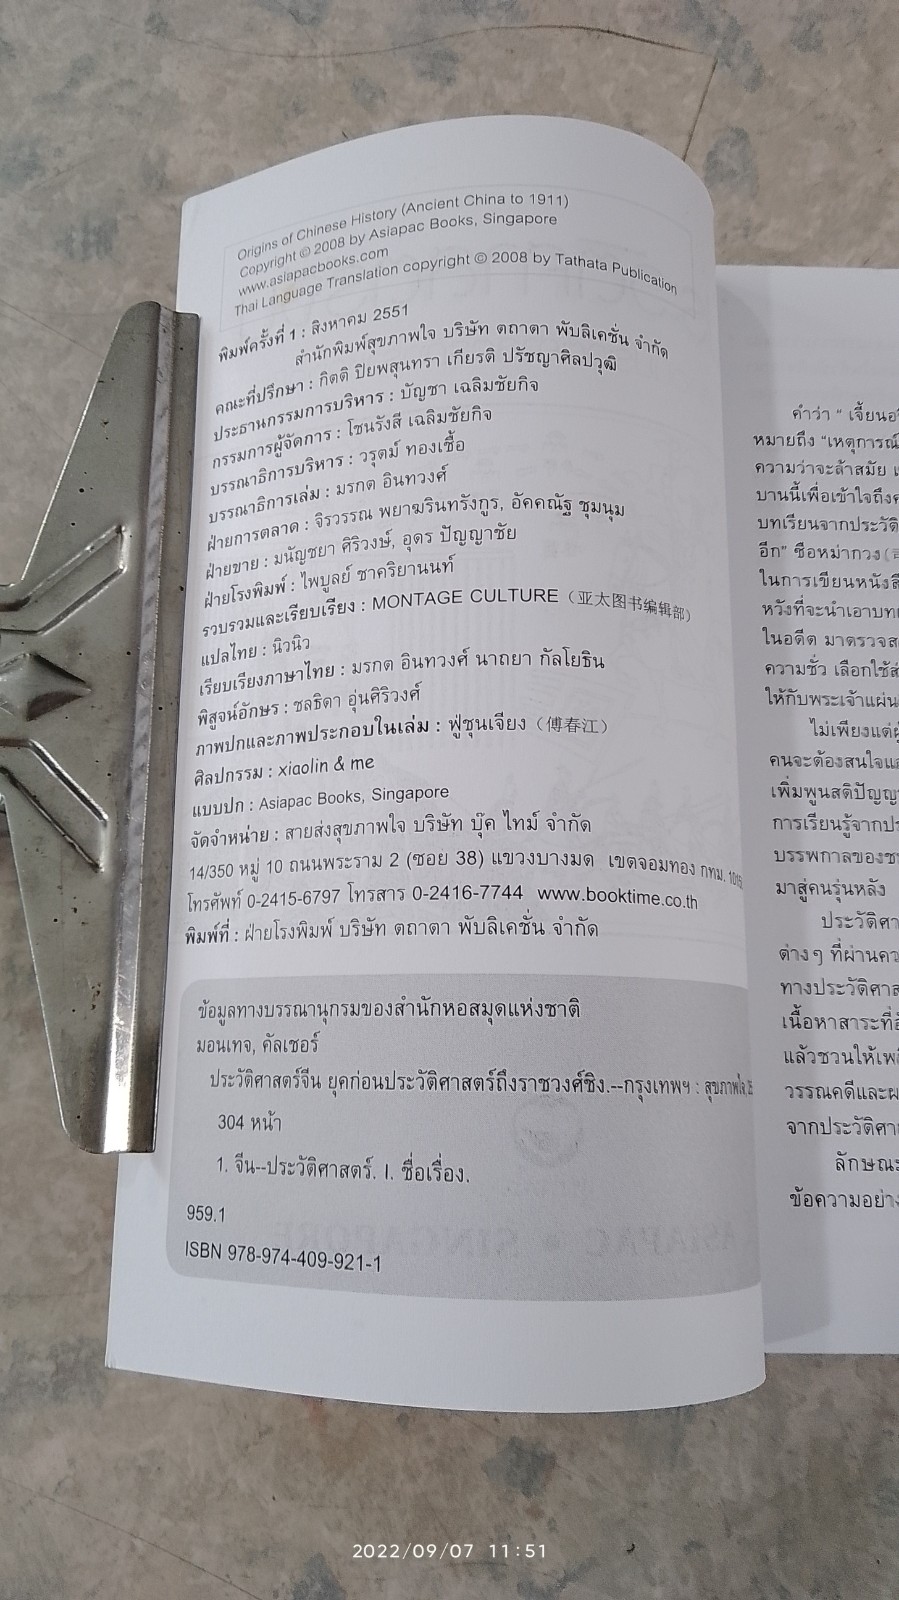 Origins of Chinese History (Ancient China to 1911)
Copyright © 2008 by Asiapac Books, Singapore
www.asiapacbooks.com
Thai Language Translation copyright © 2008 by Tathata Publication
พิมพ์ครั้งที่ 1 : สิงหาคม 2551
สำนักพิมพ์สุขภาพใจ บริษัท ตถาตา พับลิเคชั่น จำกัด
คณะที่ปรึกษา : กิตติ ปิยพสุนทรา เกียรติ ปรัชญาศิลปวุฒิ
ประธานกรรมการบริหาร : บัญชา เฉลิมชัยกิจ
กรรมการผู้จัดการ : โชนรังสี เฉลิมชัยกิจ
บรรณาธิการบริหาร : วรุตม์ ทองเชื้อ
บรรณาธิการเล่ม : มรกต อินทวงศ์
ฝ่ายการตลาด : จิรวรรณ พยาฆรินทรังกูร, อัคคณัฐ ชุมนุม
ฝ่ายขาย : มนัญชยา ศิริวงษ์, อุดร ปัญญาชัย
ฝ่ายโรงพิมพ์ : ไพบูลย์ ชาคริยานนท์
รวบรวมและเรียบเรียง : MONTAGE CULTURE（亚太图书编辑部）
แปลไทย : นิวนิว
เรียบเรียงภาษาไทย : มรกต อินทวงศ์ นาถยา กัลโยธิน
พิสูจน์อักษร : ชลธิดา อุ่นศิริวงศ์
ภาพปกและภาพประกอบในเล่ม : ฟู่ชุนเจียง（傅春江）
ศิลปกรรม : xiaolin & me
แบบปก : Asiapac Books, Singapore
จัดจำหน่าย : สายส่งสุขภาพใจ บริษัท บุ๊ค ไทม์ จำกัด
14/350 หมู่ 10 ถนนพระราม 2 (ซอย 38) แขวงบางมด เขตจอมทอง กทม.
โทรศัพท์ 0-2415-6797 โทรสาร 0-2416-7744 www.booktime.co.th
พิมพ์ที่ : ฝ่ายโรงพิมพ์ บริษัท ตถาตา พับลิเคชั่น จำกัด
ข้อมูลทางบรรณานุกรมของสำนักหอสมุดแห่งชาติ
มอนเทจ, คัลเชอร์
ประวัติศาสตร์จีน ยุคก่อนประวัติศาสตร์ถึงราชวงศ์ชิง.--กรุงเทพฯ : สุขภาพใจ,
304 หน้า
1. จีน--ประวัติศาสตร์. I. ชื่อเรื่อง.
959.1
ISBN 978-974-409-921-1
คำว่า “ เจี้ยน
หมายถึง “เหตุการณ์
ความว่าจะล้าสมัย
บานนี้เพื่อเข้าใจถึง
บทเรียนจากประวัติ
อีก” ซือหม่ากวง
ในการเขียนหนังสื
หวังที่จะนำเอาบท
ในอดีต มาตรวจส
ความชั่ว เลือกใช้
ให้กับพระเจ้าแผ่น
ไม่เพียงแต่
คนจะต้องสนใจแ
เพิ่มพูนสติปัญญ
การเรียนรู้จากป
บรรพกาลของช
มาสู่คนรุ่นหลัง
ประวัติศา
ต่างๆ ที่ผ่านคว
ทางประวัติศาส
เนื้อหาสาระที่
แล้วชวนให้เพ
วรรณคดีและผ
จากประวัติศา
ลักษณะ
ข้อความอย่าง
2022/09/07 11:51